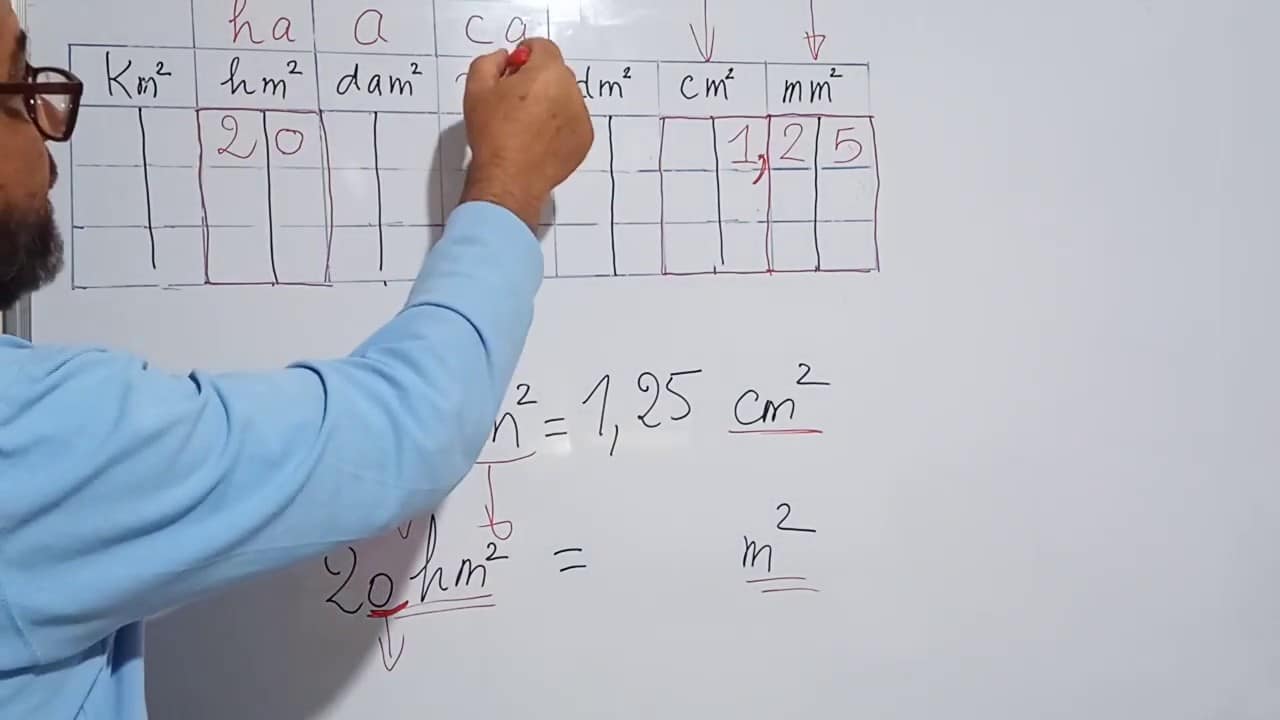 ha a ca
Km² hm² dam² dm² cm² mm²
20 1,25
² = 1,25 cm²
20 hm² = m²